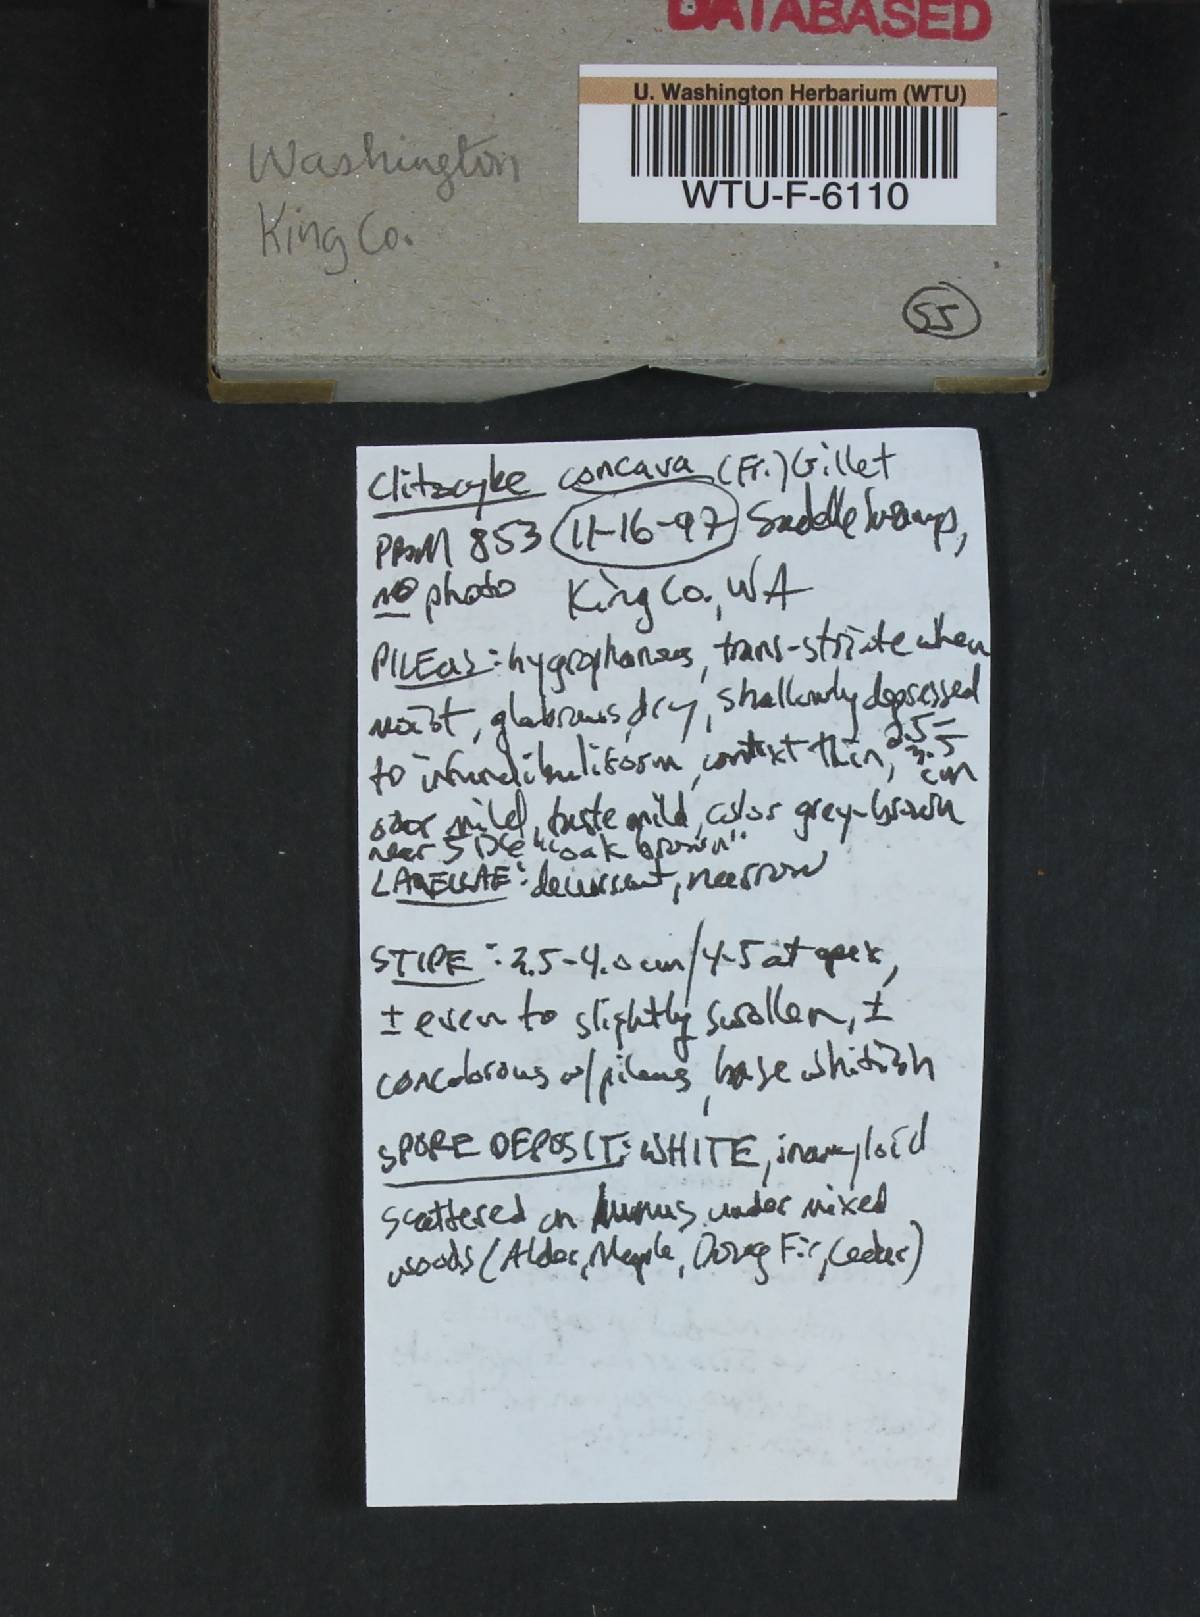 DATABASED
U. Washington Herbarium (WTU)
WTU-F-6110
Washington
King Co.
55
Clitocybe concava (Fr.) Gillet
PBM 853 11-16-97 Saddle Swamp,
NO photo King Co., WA
PILEUS: hygrophanous, trans-striate when
moist, glabrous, dry, shallowly depressed
to infundibuliform, context thin, 2.5-
3.5 cm
odor mild, taste mild, color grey-brown
near "oak brown"
LAMELLAE: decurrent, narrow
STIPE: 3.5-4.0 cm/4-5 at apex,
± even to slightly swollen, ±
concolorous w/pileus, base whitish
SPORE DEPOSIT: WHITE, inamyloid
scattered on humus under mixed
woods (Alder, Maple, Doug Fir, Cedar)